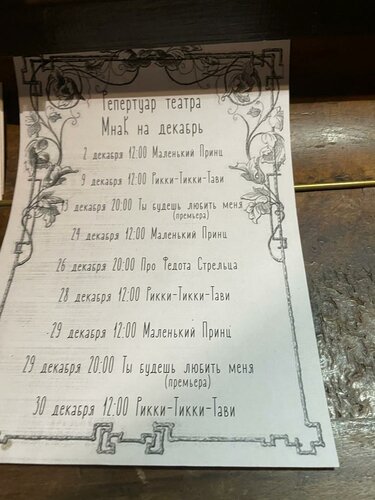 Репертуар театра
МнаК на декабрь
2 декабря 12:00 Маленький Принц
9 декабря 12:00 Рикки-Тикки-Тави
13 декабря 20:00 Ты будешь любить меня
(премьера)
24 декабря 12:00 Маленький Принц
26 декабря 20:00 Про Федота Стрельца
28 декабря 12:00 Рикки-Тикки-Тави
29 декабря 12:00 Маленький Принц
29 декабря 20:00 Ты будешь любить меня
(премьера)
30 декабря 12:00 Рикки-Тикки-Тави